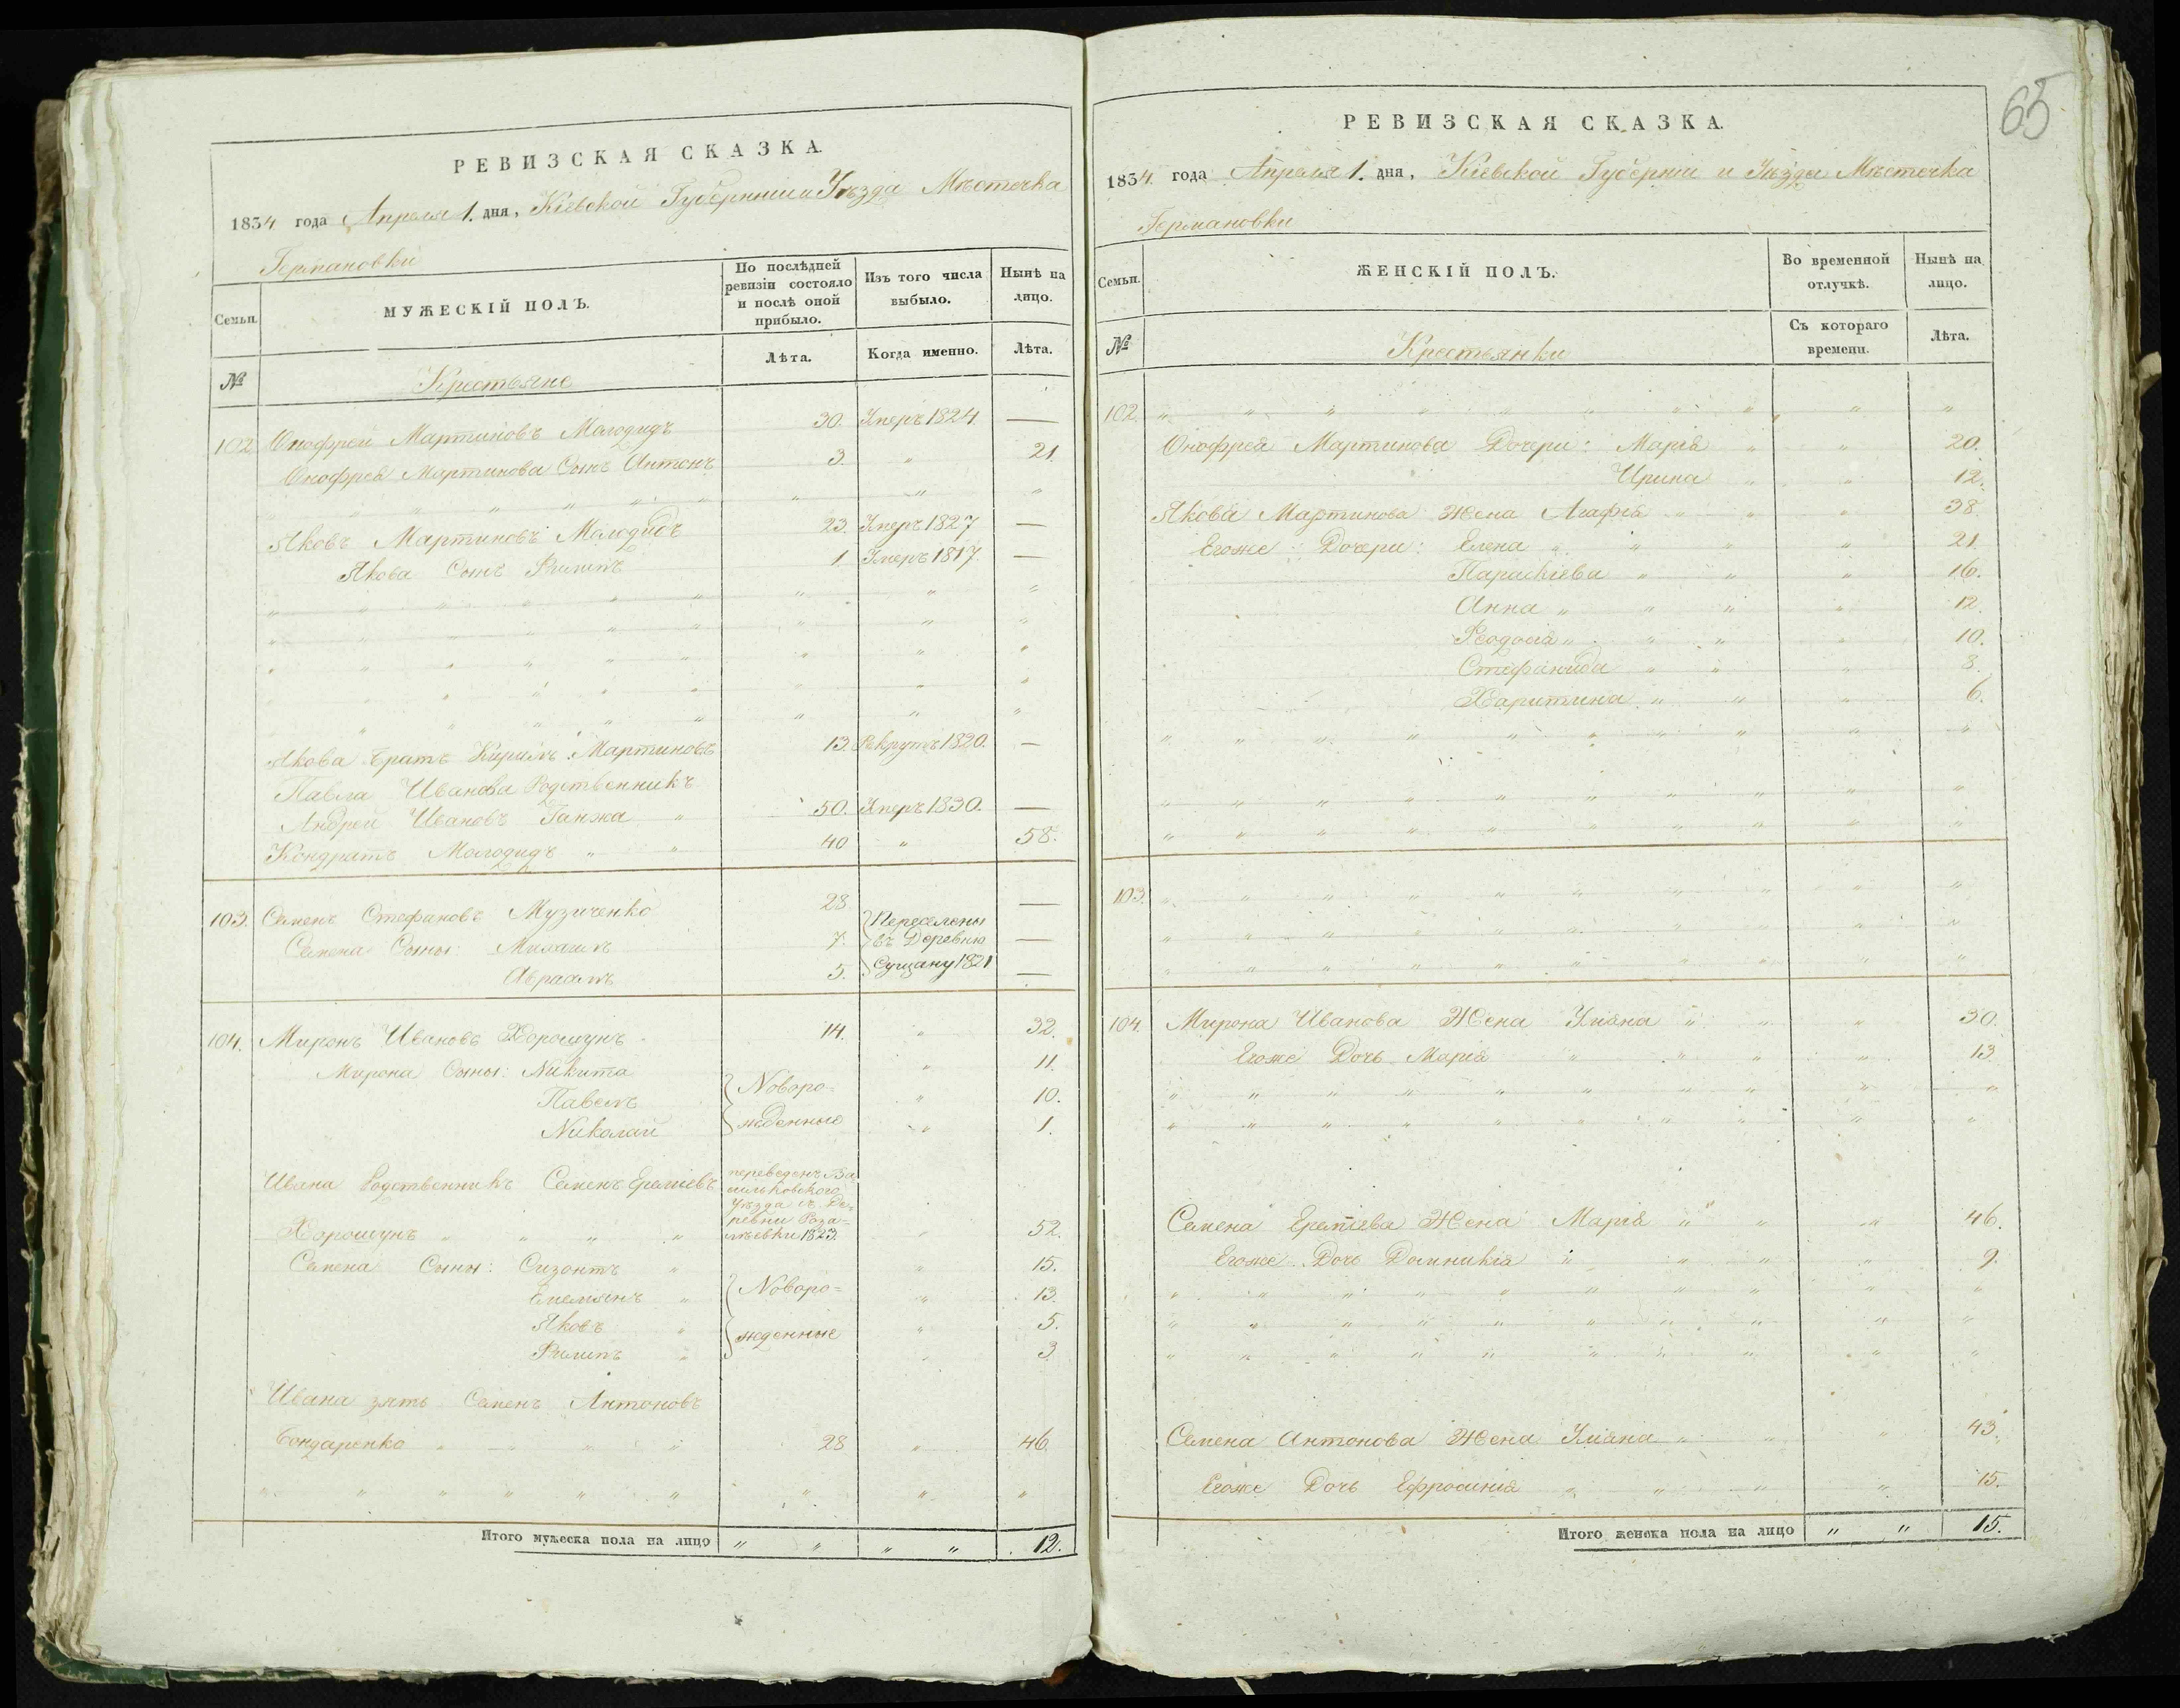 РЕВИЗСКАЯ СКАЗКА.
1834 года Апреля 1. дня, Кіевской Губерніи и Уѣзда Мѣстечка
Германовки
Семьи.
МУЖЕСКІЙ ПОЛЪ.
По послѣдней ревизіи состояло и послѣ оной прибыло.
Изъ того числа выбыло.
Нынѣ на лицо.
№
Крестьяне
Лѣта.
Когда именно.
Лѣта.
102 Онофрей Мартиновъ Молодидъ 30. Умеръ 1824 —
Онофрея Мартинова Сынъ Антонъ 3. " 21.
" " " " " " " " "
Яковъ Мартиновъ Молодидъ 23. Умеръ 1827 —
Якова Сынъ Филипъ 1. Умеръ 1817. —
" " " " " " " " "
" " " " " " " " "
" " " " " " " " "
" " " " " " " "
" " " " " " " "
Якова братъ Кирилъ Мартиновъ 13. Рекрутъ 1820. —
Павла Иванова Родственникъ
Андрей Ивановъ Ганжа " 50. Умеръ 1830. —
Кондратъ Молодидъ " " 40 " 58.
103. Семенъ Стефановъ Музиченко 28. Переселены —
Семена Сыны: Михаилъ 7. въ Деревню —
Авраамъ 5. Сущану 1821 —
104. Миронъ Ивановъ Хорошунъ 14. " 32.
Мирона Сыны: Никита " 11.
Павелъ Новоро- " 10.
Николай жденные " 1.
Ивана Родственникъ Семенъ Ереміевъ переведенъ Ва
сильковского
Уѣзда съ Де-
ревни Роза-
Хорошунъ " " " " лѣевки 1823. " 52.
Семена Сыны: Сизонтъ " " 15.
Емельянъ " Новоро= " 13.
Яковъ " жденные " 5.
Филипъ " " 3
Ивана зять Семенъ Антоновъ
Бондаренко " " " " 28 " 46.
" " " " " " " " "
Итого мужеска пола на лицо " " " " 12.
65
РЕВИЗСКАЯ СКАЗКА.
1834 года Апреля 1. дня, Кіевской Губерніи и Уѣзда Мѣстечка
Германовки
Семьи.
ЖЕНСКІЙ ПОЛЪ.
Во временной отлучкѣ.
Нынѣ на лицо.
№
Крестьянки
Съ котораго времени.
Лѣта.
102. " " " " " " " " " "
Онофрея Мартинова Дочери: Марія " " 20.
Ирина " " 12.
Якова Мартинова Жена Агафія " " " 38.
Егоже Дочери: Елена " " " " 21.
Параскіева " " " 16.
Анна " " " " 12.
Феодосія " " " " 10.
Стефанида " " " 8.
Харитина " " " 6.
" " " " " " " " " "
" " " " " " " " " "
" " " " " " " " " "
103. " " " " " " " " " "
" " " " " " " " " "
" " " " " " " " " "
104. Мирона Иванова Жена Уліяна " " " 30.
Егоже Дочь Марія " " " " 13.
" " " " " " " " " "
" " " " " " " " " "
Семена Ереміева Жена Марія " " " 46.
Егоже Дочь Домникія " " " " 9.
" " " " " " " " " "
" " " " " " " " " "
" " " " " " " " " "
Семена Антонова Жена Уліяна " " " 43.
Егоже Дочь Ефросинія " " " " 15.
Итого женска пола на лицо " " 15.